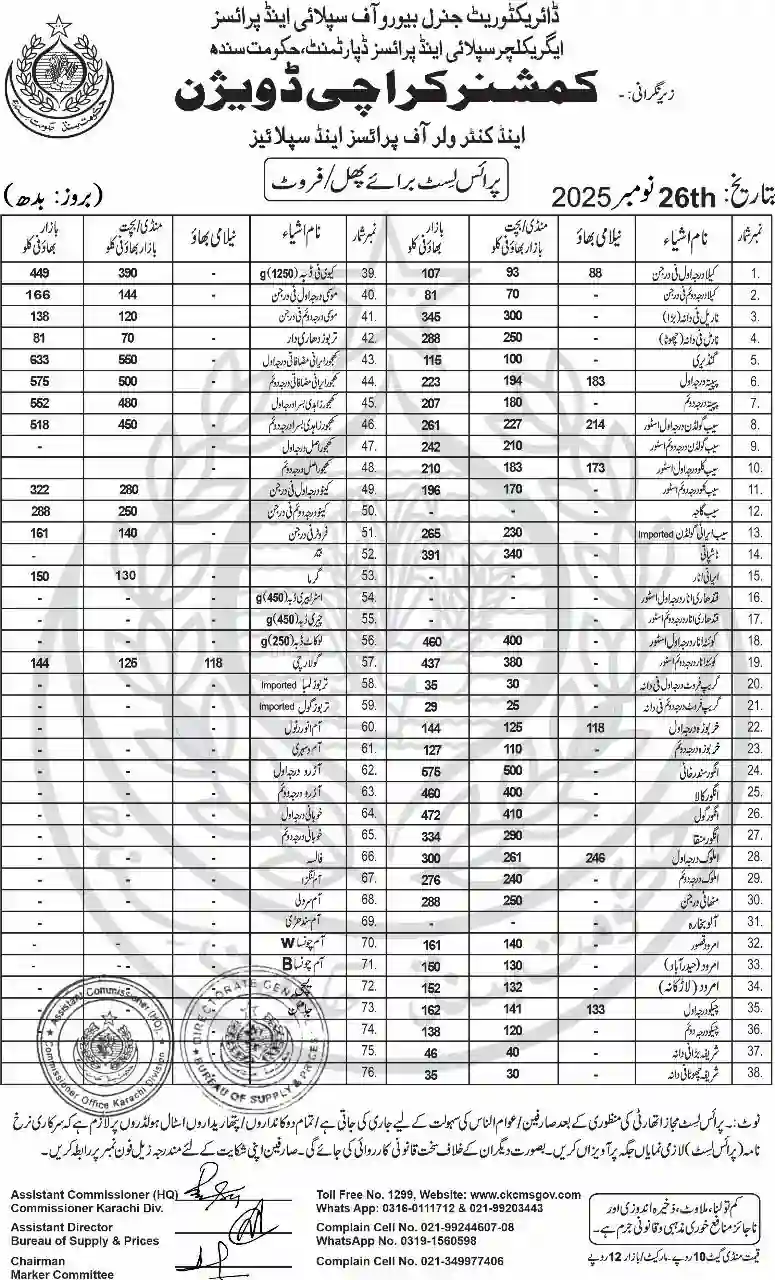 ڈائریکٹوریٹ جنرل بیورو آف سپلائی اینڈ پرائسز
ایگریکلچر سپلائی اینڈ پرائسز ڈپارٹمنٹ، حکومت سندھ
زیرنگرانی:- کمشنر کراچی ڈویژن
اینڈ کنٹرولر آف پرائسز اینڈ سپلائیز
پرائس لسٹ برائے پھل/فروٹ
تاریخ: 26th نومبر 2025 (بروز: بدھ)
نمبر شمار نام اشیاء نیلامی بھاؤ منڈی/بچت بازار بھاؤ فی کلو بازار بھاؤ فی کلو نمبر شمار نام اشیاء نیلامی بھاؤ منڈی/بچت بازار بھاؤ فی کلو بازار بھاؤ فی کلو
1. کیلا درجہ اول فی درجن 88 93 107 39. کیوی فی ڈبہ (1250)g - 390 449
2. کیلا درجہ دوئم فی درجن - 70 81 40. موسمی درجہ اول فی درجن - 144 166
3. ناریل فی دانہ (بڑا) - 300 345 41. موسمی درجہ دوئم فی درجن - 120 138
4. ناریل فی دانہ (چھوٹا) - 250 288 42. تربوز دھاری دار - 70 81
5. گنڈیری - 100 115 43. کھجور ایرانی مضافاتی درجہ اول - 550 633
6. پپیتہ درجہ اول 183 194 223 44. کھجور ایرانی مضافاتی درجہ دوئم - 500 575
7. پپیتہ درجہ دوئم - 180 207 45. کھجور زاہدی بسرا درجہ اول - 480 552
8. سیب گولڈن درجہ اول اسٹور 214 227 261 46. کھجور زاہدی بسرا درجہ دوئم - 450 518
9. سیب گولڈن درجہ دوئم اسٹور - 210 242 47. کھجور اصل درجہ اول - -
10. سیب کلو درجہ اول اسٹور 173 183 210 48. کھجور اصل درجہ دوئم - -
11. سیب کلو درجہ دوئم اسٹور - 170 196 49. کینو درجہ اول فی درجن - 280 322
12. سیب گاجہ - - - 50. کینو درجہ دوئم فی درجن - 250 288
13. سیب ایرانی گولڈن Imported - 230 265 51. فروٹر فی درجن - 140 161
14. ناشپاتی - 340 391 52. - -
15. ایرانی انار - - - 53. گرما - 130 150
16. قندھاری انار درجہ اول اسٹور - - - 54. اسٹرابیری ڈبہ (450)g - - -
17. قندھاری انار درجہ دوئم اسٹور - - - 55. چیری ڈبہ (450)g - - -
18. کوئٹہ انار درجہ اول اسٹور - 400 460 56. لوکاٹ ڈبہ (250)g - - -
19. کوئٹہ انار درجہ دوئم اسٹور - 380 437 57. گولارچی 118 125 144
20. گریپ فروٹ درجہ اول فی دانہ - 30 35 58. تربوز لمبا Imported - - -
21. گریپ فروٹ درجہ دوئم فی دانہ - 25 29 59. تربوز گول Imported - - -
22. خربوزہ درجہ اول 118 125 144 60. آم انور رٹول - - -
23. خربوزہ درجہ دوئم - 110 127 61. آم دسہری - - -
24. انگور سندرخانی - 500 575 62. آڑو درجہ اول - - -
25. انگور کالا - 400 460 63. آڑو درجہ دوئم - - -
26. انگور گول - 410 472 64. خوبانی درجہ اول - - -
27. انگور منقا - 290 334 65. خوبانی درجہ دوئم - - -
28. املوک درجہ اول 246 261 300 66. فالسہ - - -
29. املوک درجہ دوئم - 240 276 67. آم لنگڑا - - -
30. فی درجن - 250 288 68. آم سرولی - - -
31. آلو بخارہ - - - 69. آم سندھڑی - - -
32. امرود قصور - 140 161 70. آم چونسا W - - -
33. امرود (حیدرآباد) - 130 150 71. آم چونسا B - - -
34. امرود (لاڑکانہ) - 132 152 72. - - -
35. چیکو درجہ اول 133 141 162 73. - -
36. چیکو درجہ دوئم - 120 138 74.
37. شریفہ بڑا فی دانہ - 40 46 75.
38. شریفہ چھوٹا فی دانہ - 30 35 76.
Assistant Commissioner (HQ)
Commissioner Office Karachi Division
DIRECTORATE GENERAL
BUREAU OF SUPPLY & PRICES
نوٹ:۔ پرائس لسٹ مجاز اتھارٹی کی منظوری کے بعد صارفین/عوام الناس کی سہولت کے لیے جاری کی جاتی ہے/تمام دوکانداروں/پتھاریداروں اسٹال ہولڈروں پر لازم ہے کہ سرکاری نرخ
نامہ (پرائس لسٹ) لازمی نمایاں جگہ پر آویزاں کریں۔ بصورت دیگر ان کے خلاف سخت قانونی کارروائی کی جائے گی۔ صارفین اپنی شکایت کے لئے مندرجہ زیل فون نمبر پر رابطہ کریں۔
Assistant Commissioner (HQ)
Commissioner Karachi Div.
Assistant Director
Bureau of Supply & Prices
Chairman
Marker Committee
Toll Free No. 1299, Website: www.ckcmsgov.com
Whats App: 0316-0111712 & 021-99203443
Complain Cell No. 021-99244607-08
WhatsApp No. 0319-1560598
Complain Cell No. 021-349977406
کم تولنا، ملاوٹ، ذخیرہ اندوزی اور
ناجائز منافع خوری مذہبی و قانونی جرم ہے۔
قیمت منڈی گیٹ 10 روپے ۔ مارکیٹ/بازار 12 روپے